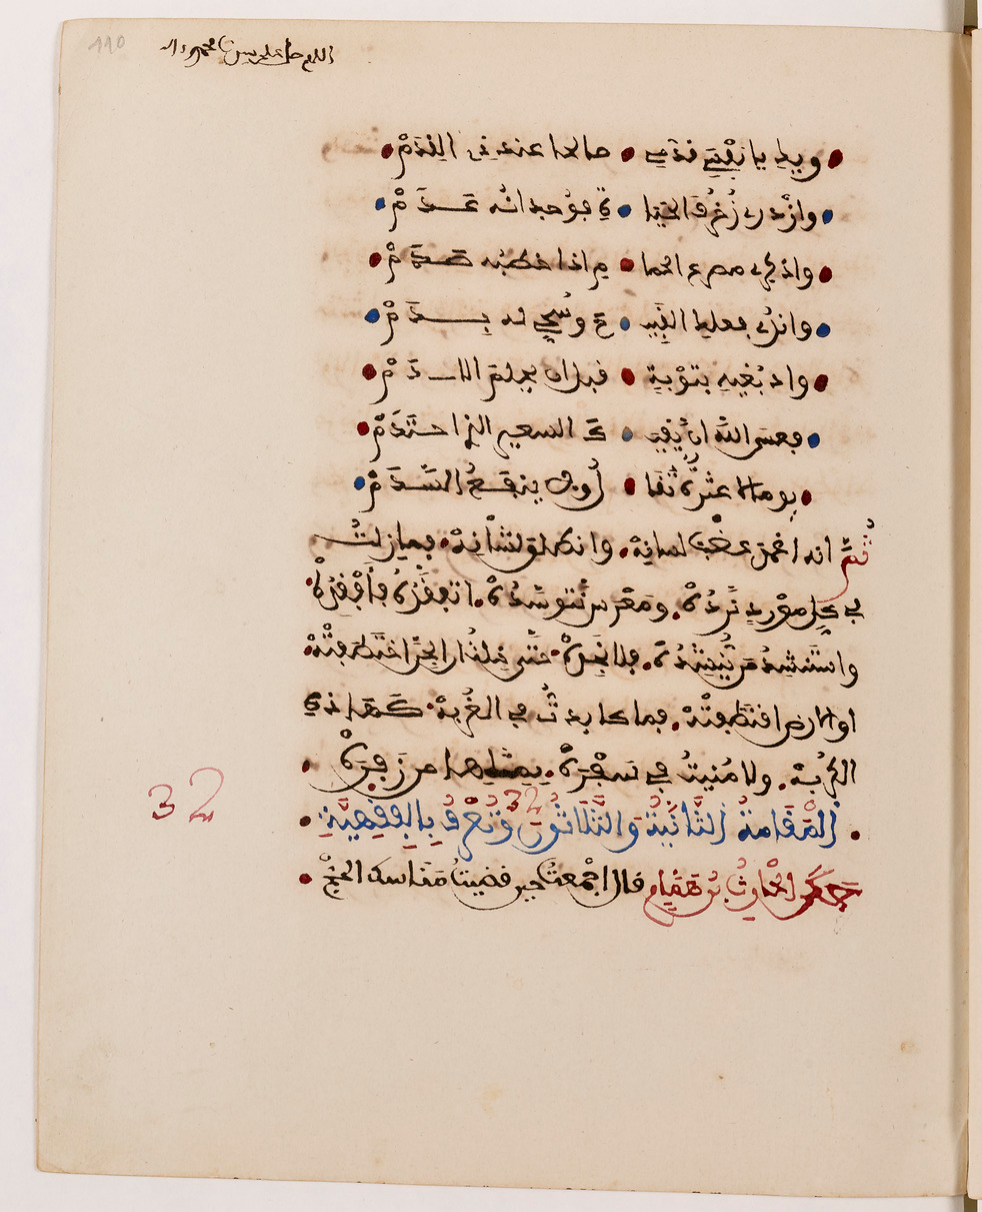 اللهم صل على سيدنا محمد وآله
ويك يا نفس قدمي • صالحا عند ذي القدم •
وازدري زخرف الحيا • ة فوجدانه عدم •
واذكري مصرع الحما • م اذا خطبه صدم •
واندبي فعلك القبيـ • ح وسحي له بدم •
وادبغيه بتوبة • قبل ان يحلم الادم •
فعسى الله ان يقيـ • ك السعير الذي احتدم •
يوم لا عثرة تقا • ل ولا ينفع السدم •
ثم انه اغمد عضب لسانه. وانطلق لشانه. فما زلت
في كل مورد نرده. ومعرس نتوسده. اتفقده فافقده.
واستنشد من ينشده. فلا يجده. حتى خلت ان الجن اختطفته.
او الارض اقتطفته. فما كابدت في الغربة. كهذي
الكربة. ولا منيت في سفرة. بمثلها من زفرة.
المقامة الثانية والثلاثون وتعرف بالفقهية. 32
32
حكى الحارث بن همام قال اجمعت حين قضيت مناسك الحج •